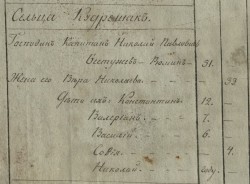 Сельца Кудрешк.
Господинъ Капитанъ Николай Павловичъ
Бестужевъ-Рюминъ 31.
Жена его Вѣра Николаева. 33
Дѣти ихъ: Константинъ 12.
Валерьянъ. 7.
Василій 6.
Софія. 4.
Николай году.